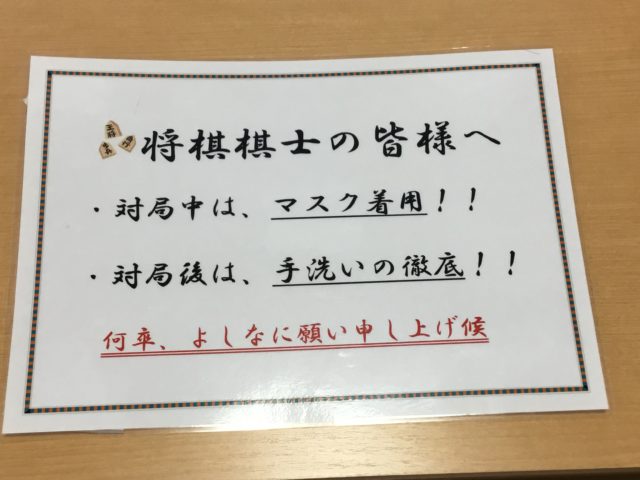 将棋棋士の皆様へ
・対局中は、マスク着用！！
・対局後は、手洗いの徹底！！
何卒、よしなに願い申し上げ候